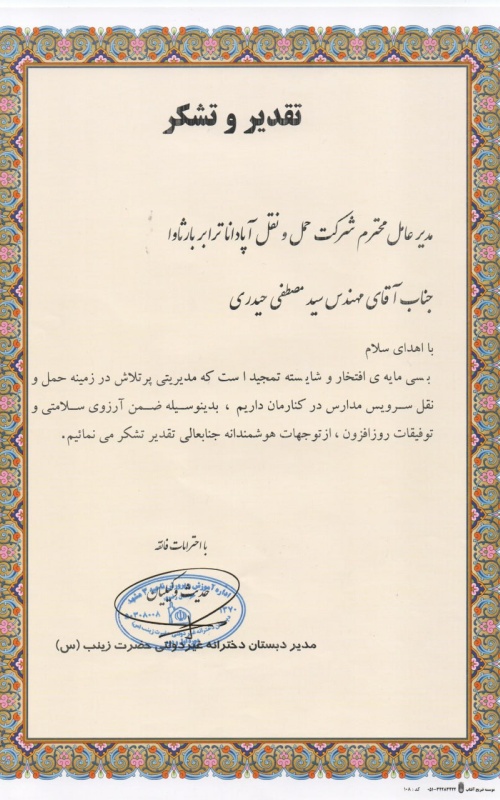 تقدیر و تشکر
مدیر عامل محترم شرکت حمل و نقل آپادانا ترابر بارثاوا
جناب آقای مهندس سید مصطفی حیدری
با اهدای سلام
بسی مایه ی افتخار و شایسته تمجید است که مدیریتی پرتلاش در زمینه حمل و
نقل سرویس مدارس در کنارمان داریم ، بدینوسیله ضمن آرزوی سلامتی و
توفیقات روزافزون ، از توجهات هوشمندانه جنابعالی تقدیر تشکر می نمائیم.
با احترامات فائقه
اداره آموزش
۱۳۷۰
مدیر دبستان دخترانه غیردولتی حضرت زینب (س)
کد : ۱۰۸